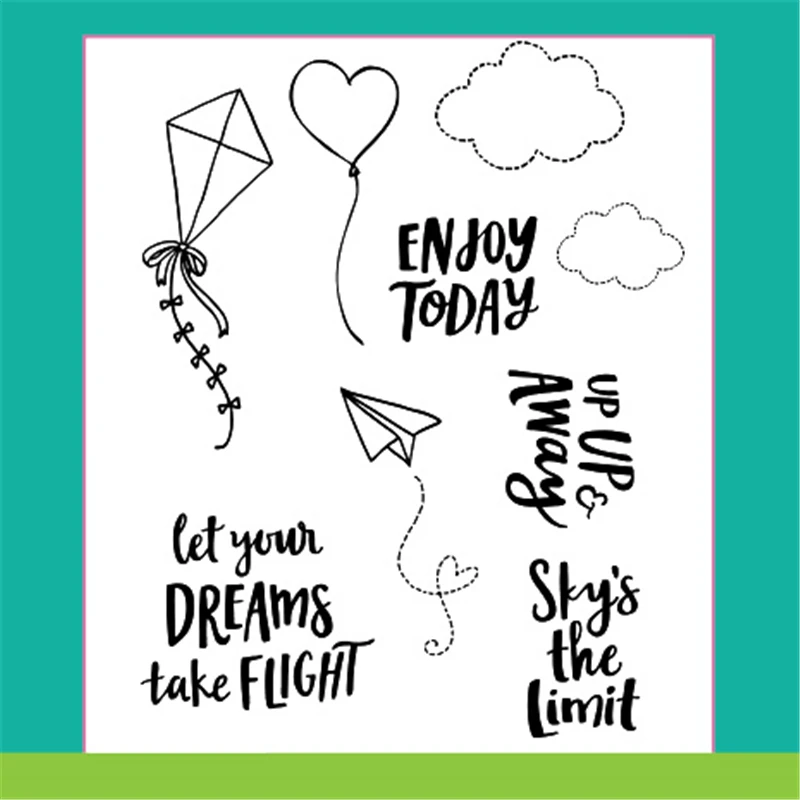 ENJOY
TODAY
UP UP &
AWAY
let your
DREAMS
take FLIGHT
Sky's
the
Limit